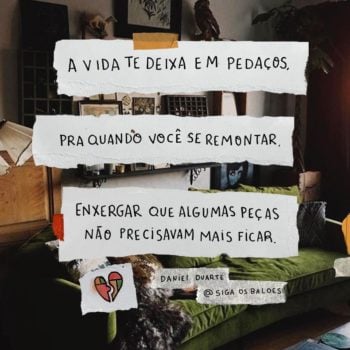 A VIDA TE DEIXA EM PEDAÇOS,
PRA QUANDO VOCÊ SE REMONTAR,
ENXERGAR QUE ALGUMAS PEÇAS
NÃO PRECISAVAM MAIS FICAR.
DANIEL DUARTE
@ SIGA OS BALÕES